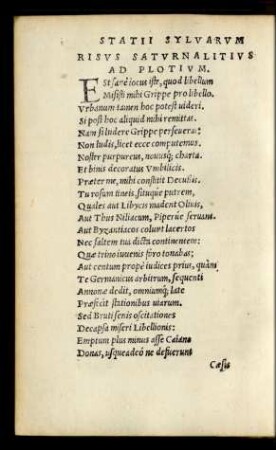 STATII SYLVARVM
RISVS SATVRNALITIVS
AD PLOTIVM.
ESt sanè iocus iste, quod libellum
Misisti mihi Grippe pro libello.
Vrbanum tamen hoc potest uideri.
Si post hoc aliquid mihi remittas.
Nam si ludere Grippe perseueras:
Non ludis, licet ecce computemus.
Noster purpureus, nouusq; charta.
Et binis decoratus Vmbilicis.
Præter me, mihi constitit Decussis.
Tu rosum tineis, situque putrem,
Quales aut Libycis madent Oliuis,
Aut Thus Niliacum, Piperúe seruant.
Aut Byzantiacos colunt lacertos
Nec saltem tua dictu continentem:
Quæ trino iuuenis foro tonabas:
Aut centum propè iudices prius, quàm
Te Germanicus arbitrum, sequenti
Annonæ dedit, omniumq; late
Præfecit stationibus uiarum.
Sed Bruti senis oscitationes
Decapsa miseri Libellionis:
Emptum plus minus asse Caiano
Donas, usqueadeò ne defuerunt
Cæsis